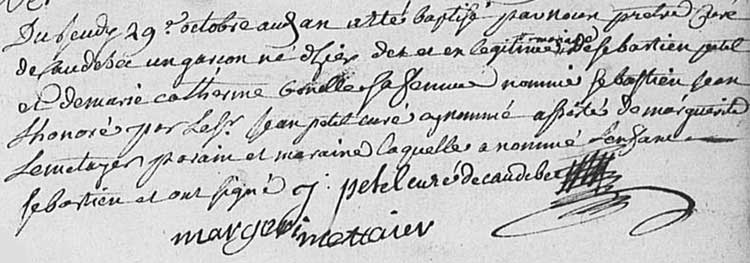 Du Jeudy 29e octobre audt an a été baptisé par nous pretre curé
de caudebec un garçon né d'hier de et en legitime mariage de sebastien petel
et de marie catherine sa femme nommé sebastien jean
honoré par le Sr. jean petel curé assisté de marguerite
Lemetayer parain et maraine laquelle a nommé l'enfant
sebastien et ont signé J. petel curé de caudebec
margeri mettaier